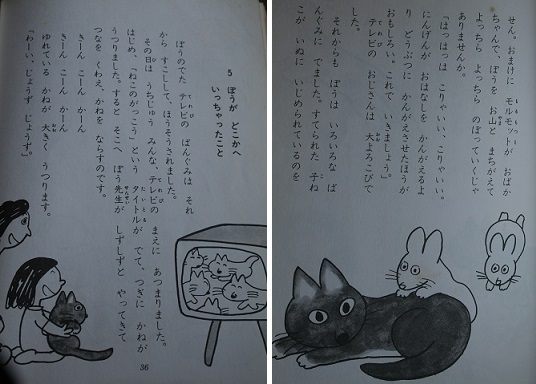 せん。おまけに モルモットが おばか
ちゃんで、ぼうを お山と まちがえて
よっちら よっちら のぼっていくじゃ
ありませんか。
「はっはっは こりゃいい、こりゃいい。
にんげんが おはなしを かんがえるよ
り どうぶつに かんがえさせたほうが
おもしろい。これで いきましょう」
テレビの おじさんは 大よろこびで
した。
それからも ぼうは いろいろな ば
んぐみに でました。すてられた 子ね
こが いぬに いじめられているのを
5 ぼうが どこかへ
いっちゃったこと
ぼうのでた テレビの ばんぐみは それ
から すこしして、ほうそうされました。
その日は うちじゅう みんな、テレビの まえに あつまりました。
はじめ、「ねこのがっこう」という タイトルが でて、つぎに かねが
うつりました。すると そこへ ぼう先生が しずしずと やってきて
つなを くわえ、かねを ならすのです。
きーん こーん かーん
きーん こーん かーん
ゆれている かねが 大きく うつります。
「わーい、じょうず じょうず」
36